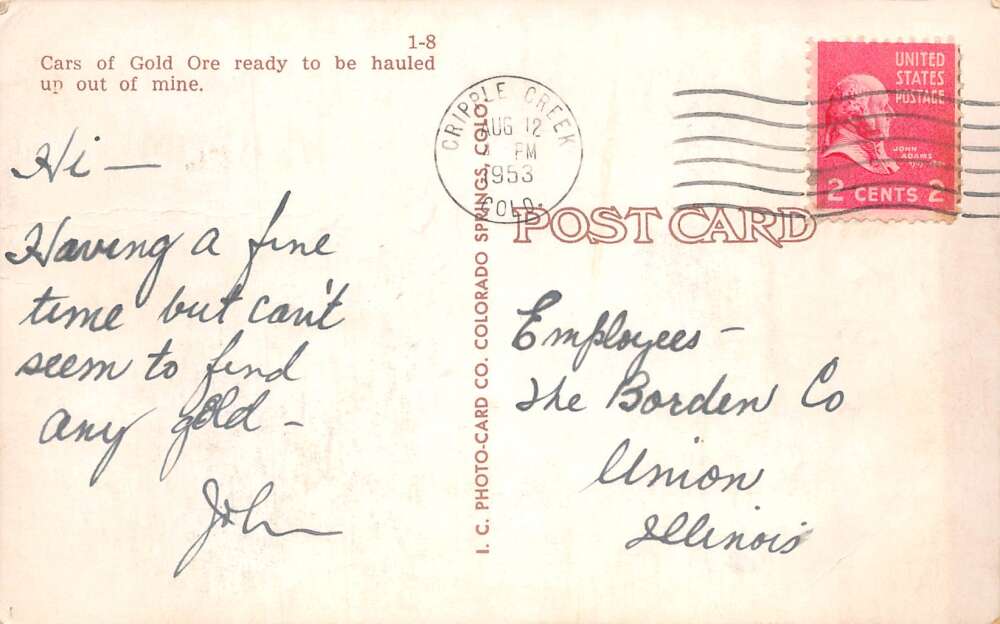 1-8
Cars of Gold Ore ready to be hauled
up out of mine.
Hi —
Having a fine
time but can't
seem to find
any gold —
John
I. C. PHOTO-CARD CO. COLORADO SPRINGS, COLO.
CRIPPLE CREEK
AUG 12
PM
1953
COLO.
UNITED
STATES
POSTAGE
JOHN
ADAMS
2 CENTS 2
POST CARD
Employees —
The Borden Co
Union
Illinois